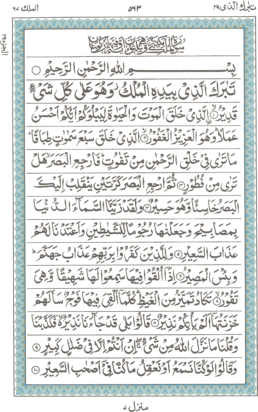 تبٰرك الذی ٢٩ ٥٦٣ الملك ٦٧
بِسْمِ اللهِ الرَّحْمٰنِ الرَّحِيْمِ
تَبٰرَكَ الَّذِیْ بِيَدِهِ الْمُلْكُ وَهُوَ عَلٰی كُلِّ شَیْءٍ
قَدِيْرٌ ۙ الَّذِیْ خَلَقَ الْمَوْتَ وَالْحَيٰوةَ لِيَبْلُوَكُمْ اَيُّكُمْ اَحْسَنُ
عَمَلًا ؕ وَهُوَ الْعَزِيْزُ الْغَفُوْرُ ۙ الَّذِیْ خَلَقَ سَبْعَ سَمٰوٰتٍ طِبَاقًا ؕ
مَا تَرٰی فِیْ خَلْقِ الرَّحْمٰنِ مِنْ تَفٰوُتٍ ؕ فَارْجِعِ الْبَصَرَ هَلْ
تَرٰی مِنْ فُطُوْرٍ ثُمَّ ارْجِعِ الْبَصَرَ كَرَّتَيْنِ يَنْقَلِبْ اِلَيْكَ
الْبَصَرُ خَاسِئًا وَّهُوَ حَسِيْرٌ وَلَقَدْ زَيَّنَّا السَّمَآءَ الدُّنْيَا
بِمَصَابِيْحَ وَجَعَلْنٰهَا رُجُوْمًا لِّلشَّيٰطِيْنِ وَاَعْتَدْنَا لَهُمْ
عَذَابَ السَّعِيْرِ وَلِلَّذِيْنَ كَفَرُوْا بِرَبِّهِمْ عَذَابُ جَهَنَّمَ ؕ
وَبِئْسَ الْمَصِيْرُ اِذَاۤ اُلْقُوْا فِيْهَا سَمِعُوْا لَهَا شَهِيْقًا وَّهِیَ
تَفُوْرُ ۙ تَكَادُ تَمَيَّزُ مِنَ الْغَيْظِ ؕ كُلَّمَاۤ اُلْقِیَ فِيْهَا فَوْجٌ سَاَلَهُمْ
خَزَنَتُهَاۤ اَلَمْ يَاْتِكُمْ نَذِيْرٌ قَالُوْا بَلٰی قَدْ جَآءَنَا نَذِيْرٌ ۙ فَكَذَّبْنَا
وَقُلْنَا مَا نَزَّلَ اللهُ مِنْ شَیْءٍ ۖ اِنْ اَنْتُمْ اِلَّا فِیْ ضَلٰلٍ كَبِيْرٍ
وَقَالُوْا لَوْ كُنَّا نَسْمَعُ اَوْ نَعْقِلُ مَا كُنَّا فِیْۤ اَصْحٰبِ السَّعِيْرِ ١٠
منزل ٧